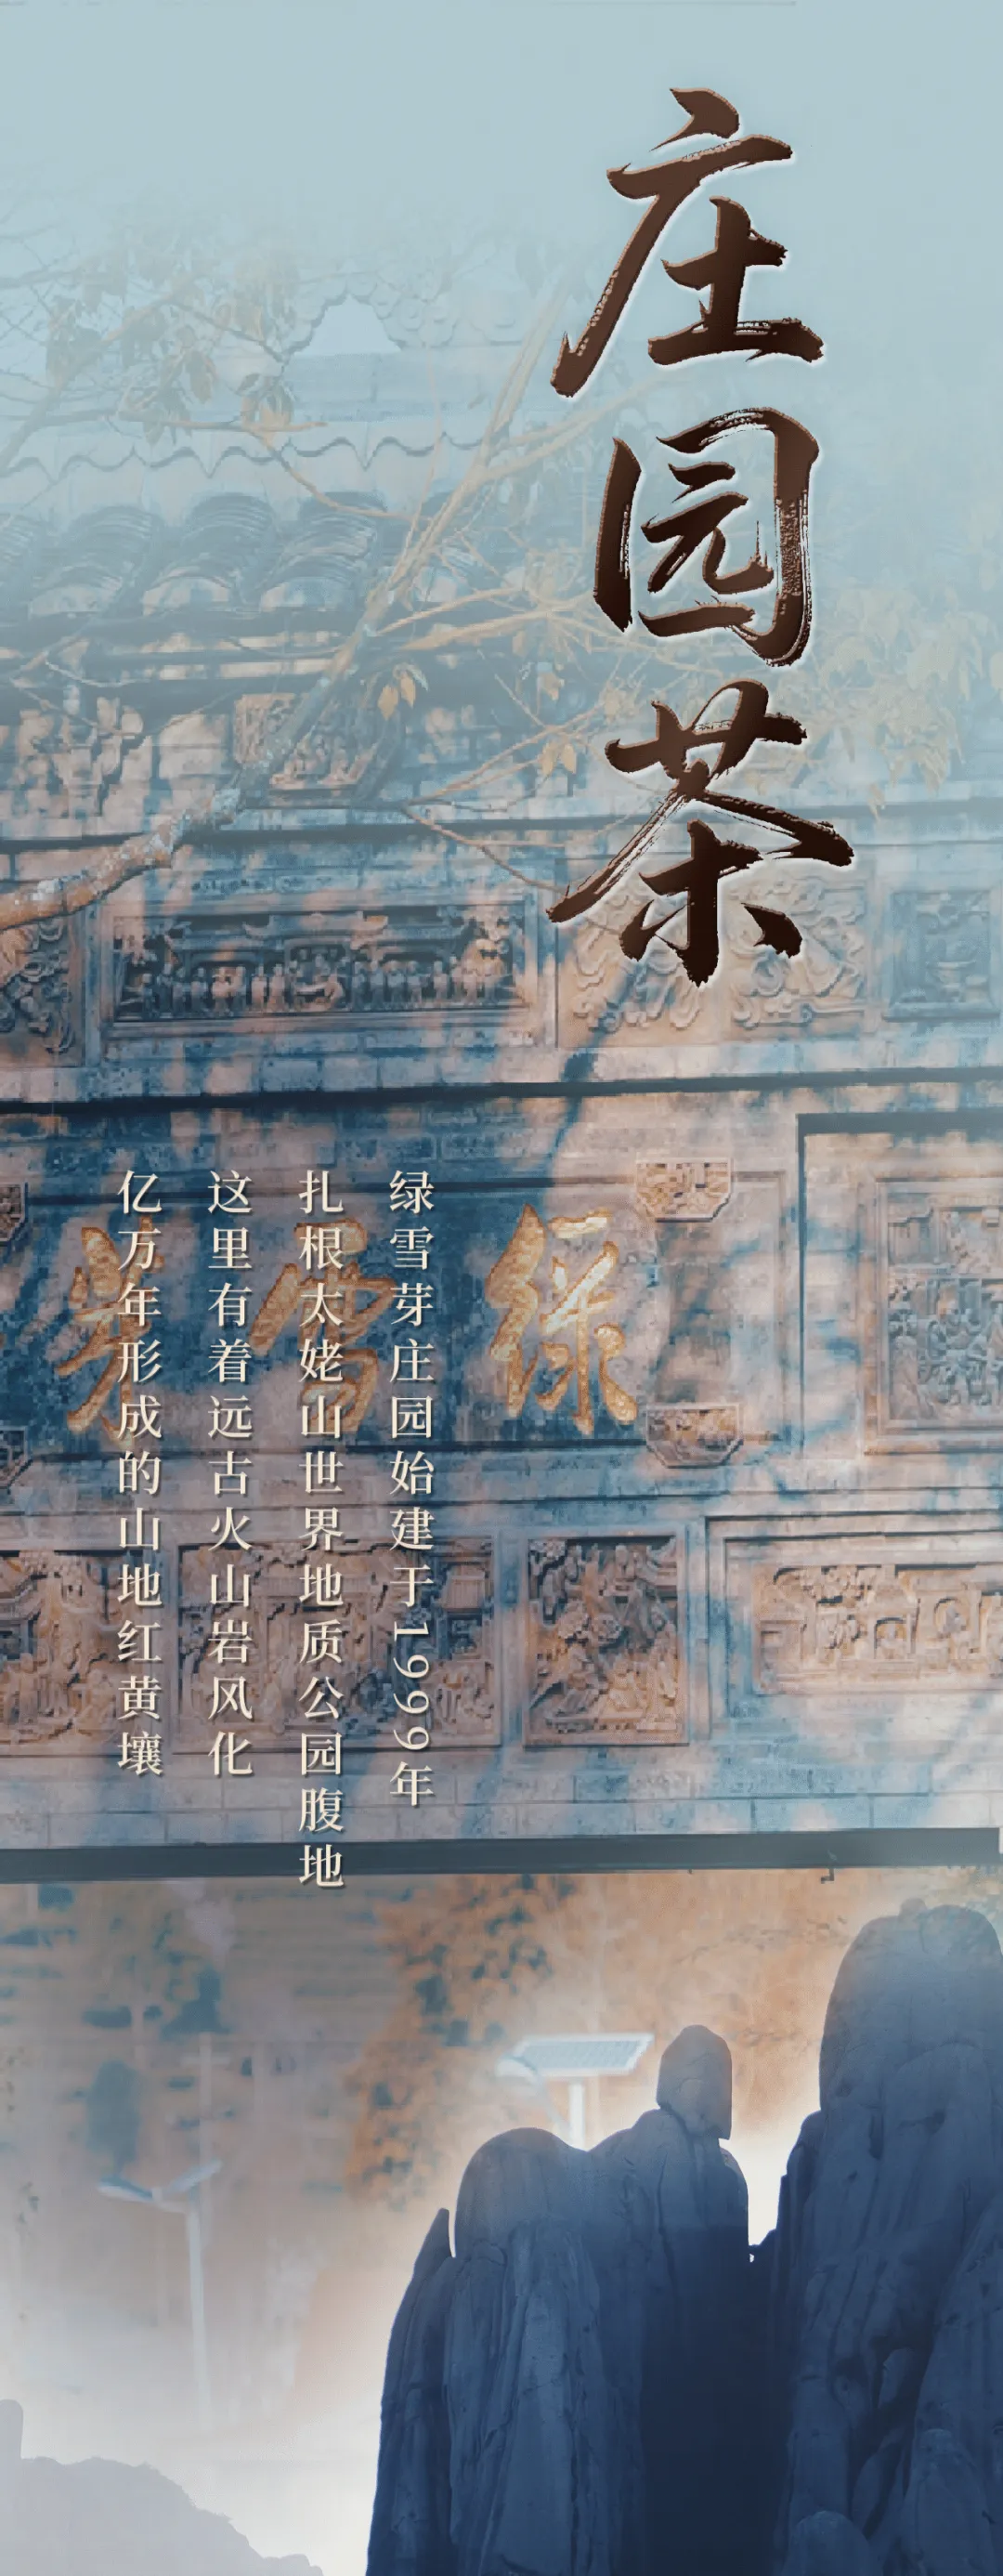 庄园茶
绿雪芽庄园始建于1999年
扎根太姥山世界地质公园腹地
这里有着远古火山岩风化
亿万年形成的山地红黄壤
绿雪芽